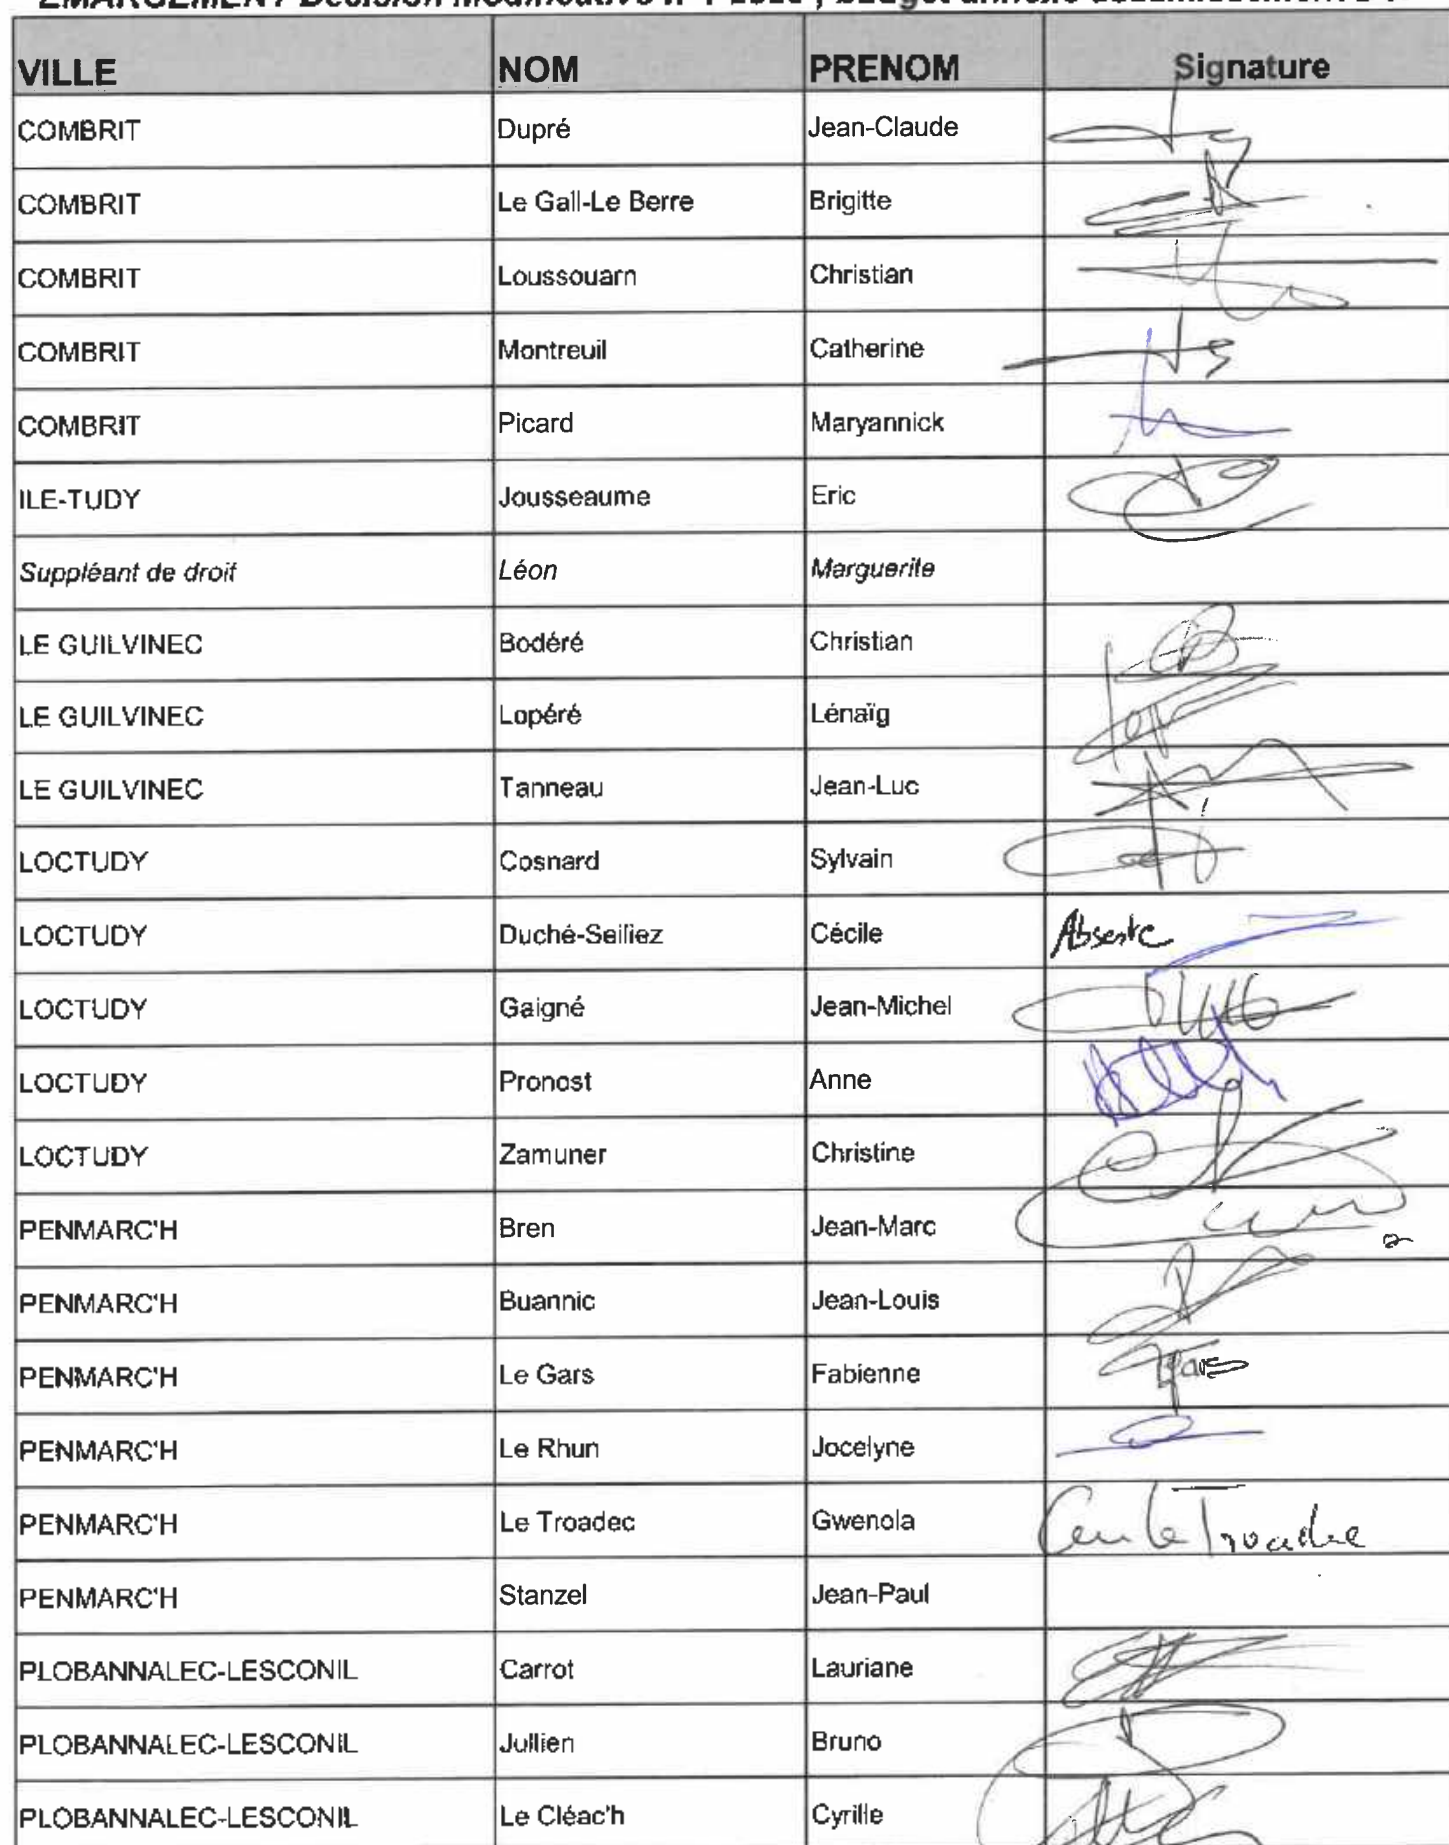 VILLE NOM PRENOM Signature
COMBRIT Dupré Jean-Claude
COMBRIT Le Gall-Le Berre Brigitte
COMBRIT Loussouarn Christian
COMBRIT Montreuil Catherine
COMBRIT Picard Maryannick
ILE-TUDY Jousseaume Eric
Suppléant de droit Léon Marguerite
LE GUILVINEC Bodéré Christian
LE GUILVINEC Lopéré Lénaïg
LE GUILVINEC Tanneau Jean-Luc
LOCTUDY Cosnard Sylvain
LOCTUDY Duché-Seiliez Cécile Absente
LOCTUDY Gaigné Jean-Michel
LOCTUDY Pronost Anne
LOCTUDY Zamuner Christine
PENMARC'H Bren Jean-Marc
PENMARC'H Buannic Jean-Louis
PENMARC'H Le Gars Fabienne
PENMARC'H Le Rhun Jocelyne
PENMARC'H Le Troadec Gwenola
PENMARC'H Stanzel Jean-Paul
PLOBANNALEC-LESCONIL Carrot Lauriane
PLOBANNALEC-LESCONIL Jullien Bruno
PLOBANNALEC-LESCONIL Le Cléac'h Cyrille